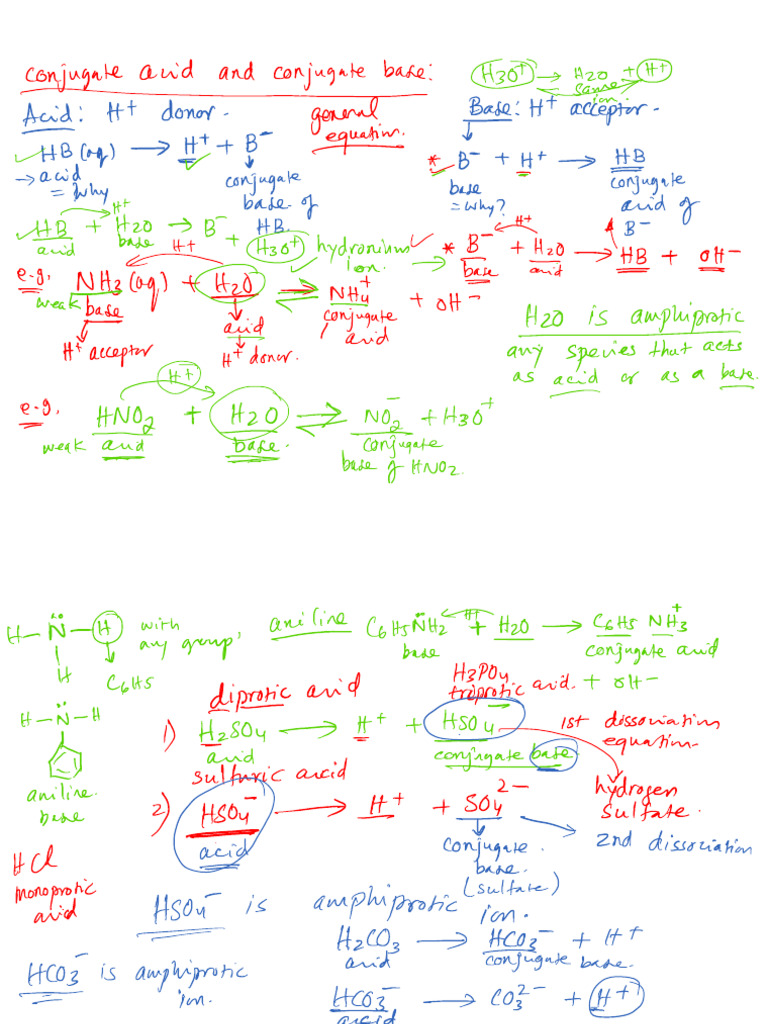 conjugate acid and conjugate base:
H3O+ → H2O + H+
same ion.
Acid: H+ donor.
general equation.
Base: H+ acceptor.
HB (aq) → H+ + B−
→ acid = why
conjugate base of HB.
* B− + H+ → HB
base = why?
conjugate acid of B−
H+
HB + H2O → B− + H3O+ hydronium ion.
acid base
H+
* B− + H2O → HB + OH−
base acid
H+
e.g. NH3 (aq) + H2O ⇌ NH4+ + OH−
weak base
acid
conjugate acid
H+ acceptor
H+ donor.
H2O is amphiprotic
any species that acts
as acid or as a base.
H+
e.g. HNO2 + H2O ⇌ NO2− + H3O+
weak acid base.
conjugate base of HNO2.
H − N̈ − H
H
with any group,
C6H5
aniline C6H5N̈H2 + H2O → C6H5 NH3+ + OH−
H+
base
conjugate acid
H − N̈ − H
aniline
base
diprotic acid
H3PO4
triprotic acid.
1) H2SO4 → H+ + HSO4−
acid
conjugate base
1st dissociation equation.
sulfuric arcid
hydrogen sulfate.
2) HSO4− → H+ + SO4 2−
acid
conjugate base.
(sulfate)
2nd dissociation
HCl
monoprotic acid
HSO4− is amphiprotic ion.
H2CO3 → HCO3− + H+
acid conjugate base.
HCO3− is amphiprotic ion.
HCO3− → CO3 2− + H+
acid